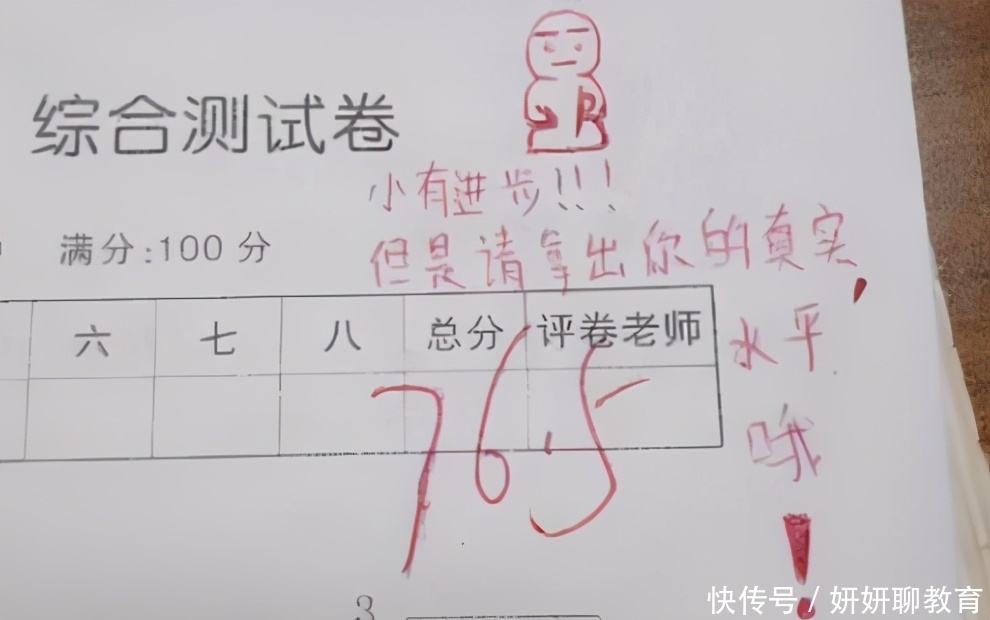 综合测试卷
小有进步!!!
满分:100 分
但是请拿出你的真实
水平
哦!
六 七 八 总分 评卷老师
76.5
3
快传号 / 妍妍聊教育